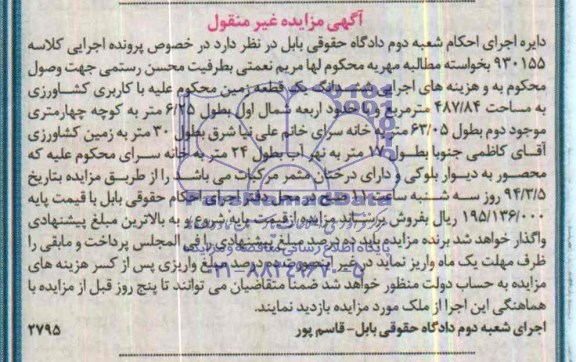 آگهی مزایده غیر منقول
دایره اجرای احکام شعبه دوم دادگاه حقوقی بابل در نظر دارد در خصوص پرونده اجرایی کلاسه
۹۳۰۱۵۵ بخواسته مطالبه مهریه محکوم لها مریم نعمتی بطرفیت محسن رستمی جهت وصول
محکوم به و هزینه های اجرایی ششدانگ یک قطعه زمین محکوم علیه با کاربری کشاورزی
به مساحت ۴۸۷/۸۴ مترمربع با حدود اربعه شمال اول بطول ۶/۲۵ متر به کوچه چهارمتری
موجود دوم بطول ۶۳/۰۵ متر به خانه سرای خانم علی نیا شرق بطول ۳۰ متر به زمین کشاورزی
آقای کاظمی جنوبا بطول ۱۷ متر به نهر آب بطول ۲۴ متر به خانه سرای محکوم علیه که
محصور به دیوار بلوکی و دارای درختان مثمر مرکبات می باشد را از طریق مزایده بتاریخ
۹۴/۳/۵ روز سه شنبه ساعت ۱۱ صبح در محل دفتر اجرای احکام حقوقی بابل با قیمت پایه
۱۹۵/۱۳۶/۰۰۰ ریال بفروش برساند مزایده از قیمت پایه شروع و به بالاترین مبلغ پیشنهادی
واگذار خواهد شد برنده مزایده باید ده درصد مبلغ پیشنهادی را فی المجلس پرداخت و مابقی را
ظرف مهلت یک ماه واریز نماید در غیر اینصورت ده درصد مبلغ واریزی پس از کسر هزینه های
مزایده به حساب دولت منظور خواهد شد ضمنا متقاضیان می توانند تا پنج روز قبل از مزایده با
هماهنگی این اجرا از ملک مورد مزایده بازدید نمایند.
اجرای شعبه دوم دادگاه حقوقی بابل - قاسم پور
۲۷۹۵
ParsNamadData
۰۲۱-۸۸۳۴۹۶۷۰-۵